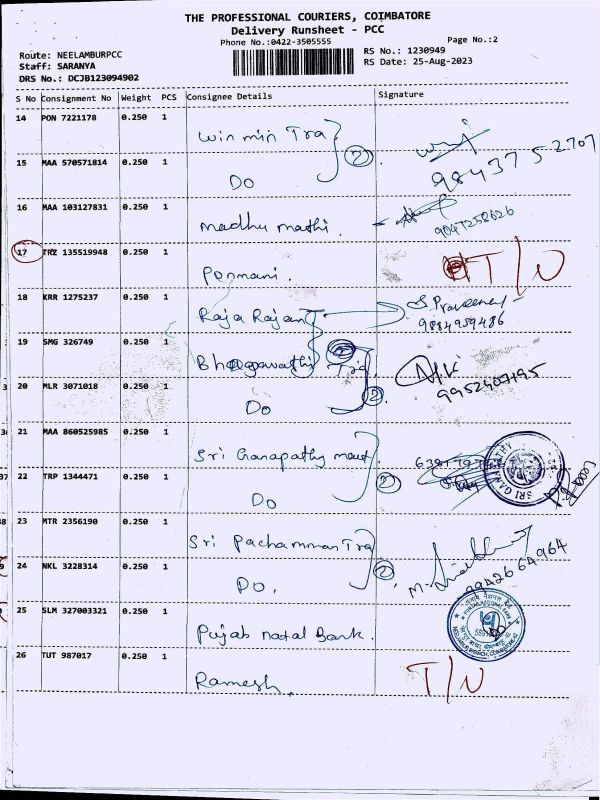 THE PROFESSIONAL COURIERS, COIMBATORE
Delivery Runsheet - PCC
Phone No.:0422-3505555
Page No.:2
Route: NEELAMBURPCC
RS No.: 1230949
Staff: SARANYA
RS Date: 25-Aug-2023
DRS No.: DCJB123094902
S No Consignment No Weight PCS Consignee Details Signature
14 PON 7221178 0.250 1
Win min Tra
2
9843752707
15 MAA 570571814 0.250 1
DO
16 MAA 103127831 0.250 1
madhu mathi.
9047258626
17 TRZ 135519948 0.250 1
Ponmani.
T/N
18 KRR 1275237 0.250 1
Raja Rajan
S. Praveena
9884959486
19 SMG 326749 0.250 1
Bhagavathi Tra
2
9952407195
20 MLR 3071018 0.250 1
DO
2
21 MAA 860525985 0.250 1
Sri Ganapathy
SRI GANAPATHY
22 TRP 1344471 0.250 1
DO
2
23 MTR 2356190 0.250 1
Sri Pachamman Tra
2
9942664964
24 NKL 3228314 0.250 1
DO.
25 SLM 327003321 0.250 1
Pujab natal Bank.
26 TUT 987017 0.250 1
Ramesh.
T/N